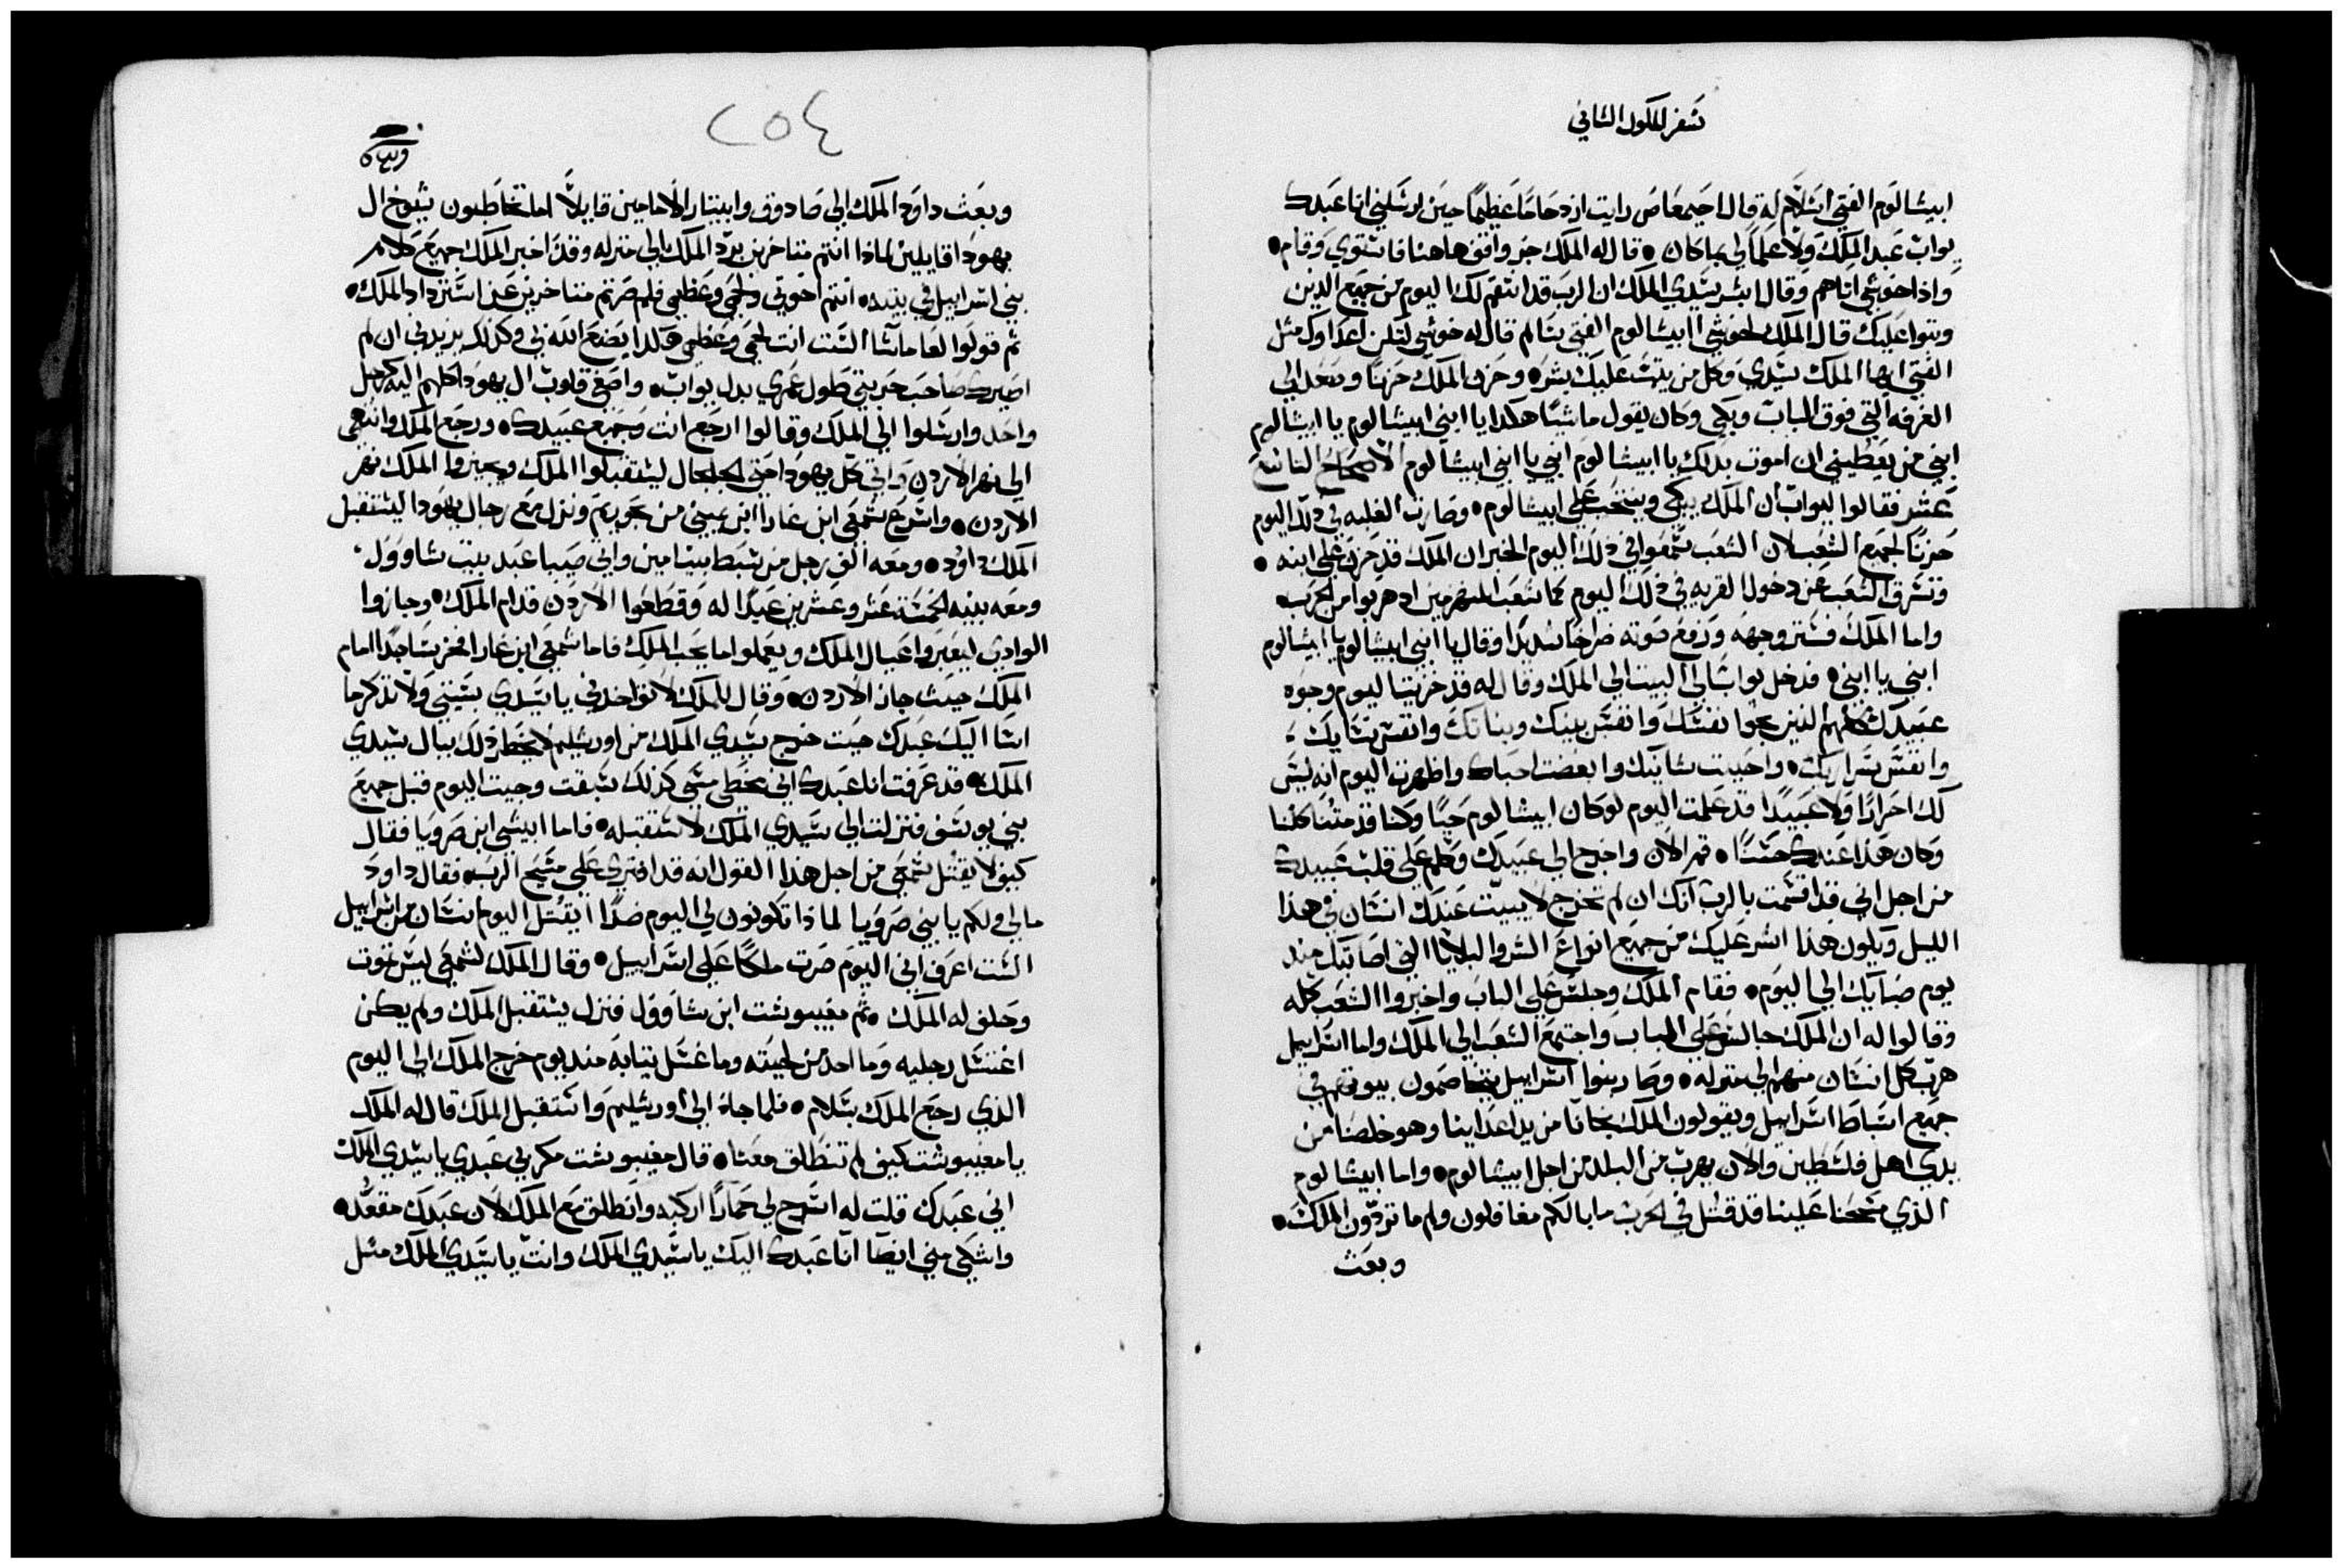 سفر الملوك الثاني
ابيشالوم الفتى اسلام له قال احيمعاص رايت ازدحاما عظيما حين ارسلني انا عبدك
يواب عبد الملك ولا علم لي بما كان • قال له الملك جز واقف هاهنا فاستوي وقام •
واذا خوشي اتاهم وقال ابشر سيدي الملك ان الرب قد انتقم لك اليوم من جميع الذين
وتبوا عليك قال الملك لخوشي ابيشالوم الفتى سالم قال له خوشي لتكن اعداوك مثل
الفتى ايها الملك سيدي وكل من يتب عليك بشر • وحزن الملك حزنا وصعد الي
الغرفه التي فوق الباب وبكى وكان يقول ماشيا هكدا يا ابني ابيشالوم يا ابيشالوم
ابني من يعطيني ان اموت بدلك يا ابيشالوم ابني يا ابني ابيشالوم الاصحاح التاسع
عشر فقالوا ليواب ان الملك يبكي وينتحب على ابيشالوم • وصارت الغلبه في دلك اليوم
حزنا لجميع الشعب لان الشعب سمعوا في ذلك اليوم الخبر ان الملك قد حزن على ابنه •
وتسرق الشعب عن دخول القريه في ذلك اليوم كما شعب المنهزمين اد هربوا من الحرب •
واما الملك فستر وجهه ورفع صوته صراخا شديدا وقال يا ابني ابيشالوم يا ابيشالوم
ابني يا ابني • فدخل يواب الي البيت الي الملك وقال له قد خزيت اليوم وجوه
عبيدك كلهم الذين نجوا نفسك وانفس بنيك وبناتك وانفس نسايك
وانفس سراريك • واحببت شانيك وابغضت احباك واظهرت اليوم انه ليس
لك احرارا ولا عبيدا قد علمت اليوم لو كان ابيشالوم حيا وكنا قد متنا كلنا
وكان هذا عندك حسنا • قم الان واخرج الي عبيدك وكلم على قلب عبيدك
من اجل اني قد اقسمت بالرب انك ان لم تخرج لا يبيت عندك انسان في هذا
الليل ويكون هذا اشر عليك من جميع انواع الشر والبلايا التي اصابتك مند
يوم صبايك الي اليوم • فقام الملك وجلس على الباب واخبروا الشعب كله
وقالوا له ان الملك جالس على الباب واجتمع الشعب الي الملك واما اسراييل
هرب كل انسان منهم الي منزله • وصار بنوا اسراييل يتخاصمون بيوتهم في
جميع اسباط اسراييل ويقولون الملك نجانا من يد اعداينا وهو خلصنا من
يدي اهل فلسطين والان يهرب من البلد من اجل ابيشالوم • واما ابيشالوم
الذي مسحنا علينا قد قتل في الحرب ما بالكم مغافلون ولم ما تردون الملك •
وبعث
٢٥٤
وبعث داود الملك الي صادوق وابيتار الامامين قايلا اما تخاطبون شيوخ ال
يهودا قايلين لماذا انتم متاخرين برد الملك الي منزله وقد اخبر الملك جميع كلام
بني اسراييل في بيته • انتم اخوتي ولحمي وعظمي فلم صرتم متاخرين عن استرداد الملك •
ثم قولوا لعاماسا الست انت لحمي وعظمي هكدا يصنع الله بي وكذلك يزيدني ان لم
اصيرك صاحب حربتي طول عمري بدل يواب • واصغى قلوب ال يهودا كلهم اليه كرجل
واحد وارسلوا الي الملك وقالوا ارجع انت وجميع عبيدك • ورجع الملك وانتهى
الي نهر الاردن واتي كل يهودا حتى الجلجال ليستقبلوا الملك ويجيزوا الملك نهر
الاردن • واسرع سمعي ابن غارا ابن يميني من بحوريم ونزل مع رجال يهودا ليستقبل
الملك داود • ومعه الف رجل من سبط بنيامين واتي صيبا عبد بيت شاوول
ومعه بنيه الخمسة عشر وعشرين عبدا له وقطعوا الاردن قدام الملك • وجازوا
الوادي ليعبروا عيال الملك ويعملوا ما يحب الملك فاما سمعي ابن غارا فخر ساجدا امام
الملك حيث جاز الاردن • وقال للملك لا تواخدني يا سيدي بسيتي ولا تذكر ما
اسا اليك عبدك حيث خرج سيدي الملك من اورشليم لا يخطر ذلك ببال سيدي
الملك • قد عرفت انا عبدك اني مخطي مسي كذلك سبقت وجيت اليوم قبل جميع
بني يوسف فنزلت الي سيدي الملك لاستقبله • فاما ابيشي ابن صرويا فقال
كيف لا يقتل سمعي من اجل هذا القول انه قد افترى على مسيح الرب • فقال داود
مالي ولكم يا بني صرويا لماذا تكونون لي اليوم ضدا ايقتل اليوم انسان من اسراييل
الست اعرف اني اليوم صرت ملكا على اسراييل • وقال الملك لسمعي ليس تموت
وحلف له الملك • ثم مفيبوشت ابن شاوول فنزل يستقبل الملك ولم يكن
اغتسل رجليه وما اخد من لحيته وما غسل تيابه مند يوم خرج الملك الي اليوم
الذي رجع الملك بسلام • فلما جاء الي اورشليم واستقبل الملك قال له الملك
يا مفيبوشت كيف لم تنطلق معنا • قال مفيبوشت مكر بي عبدي يا سيدي الملك
اني عبدك قلت له اسرج لي حمارا اركبه وانطلق مع الملك لان عبدك مقعد •
واشكي مني ايضا انا عبدك اليك يا سيدي الملك وانت يا سيدي الملك مثل